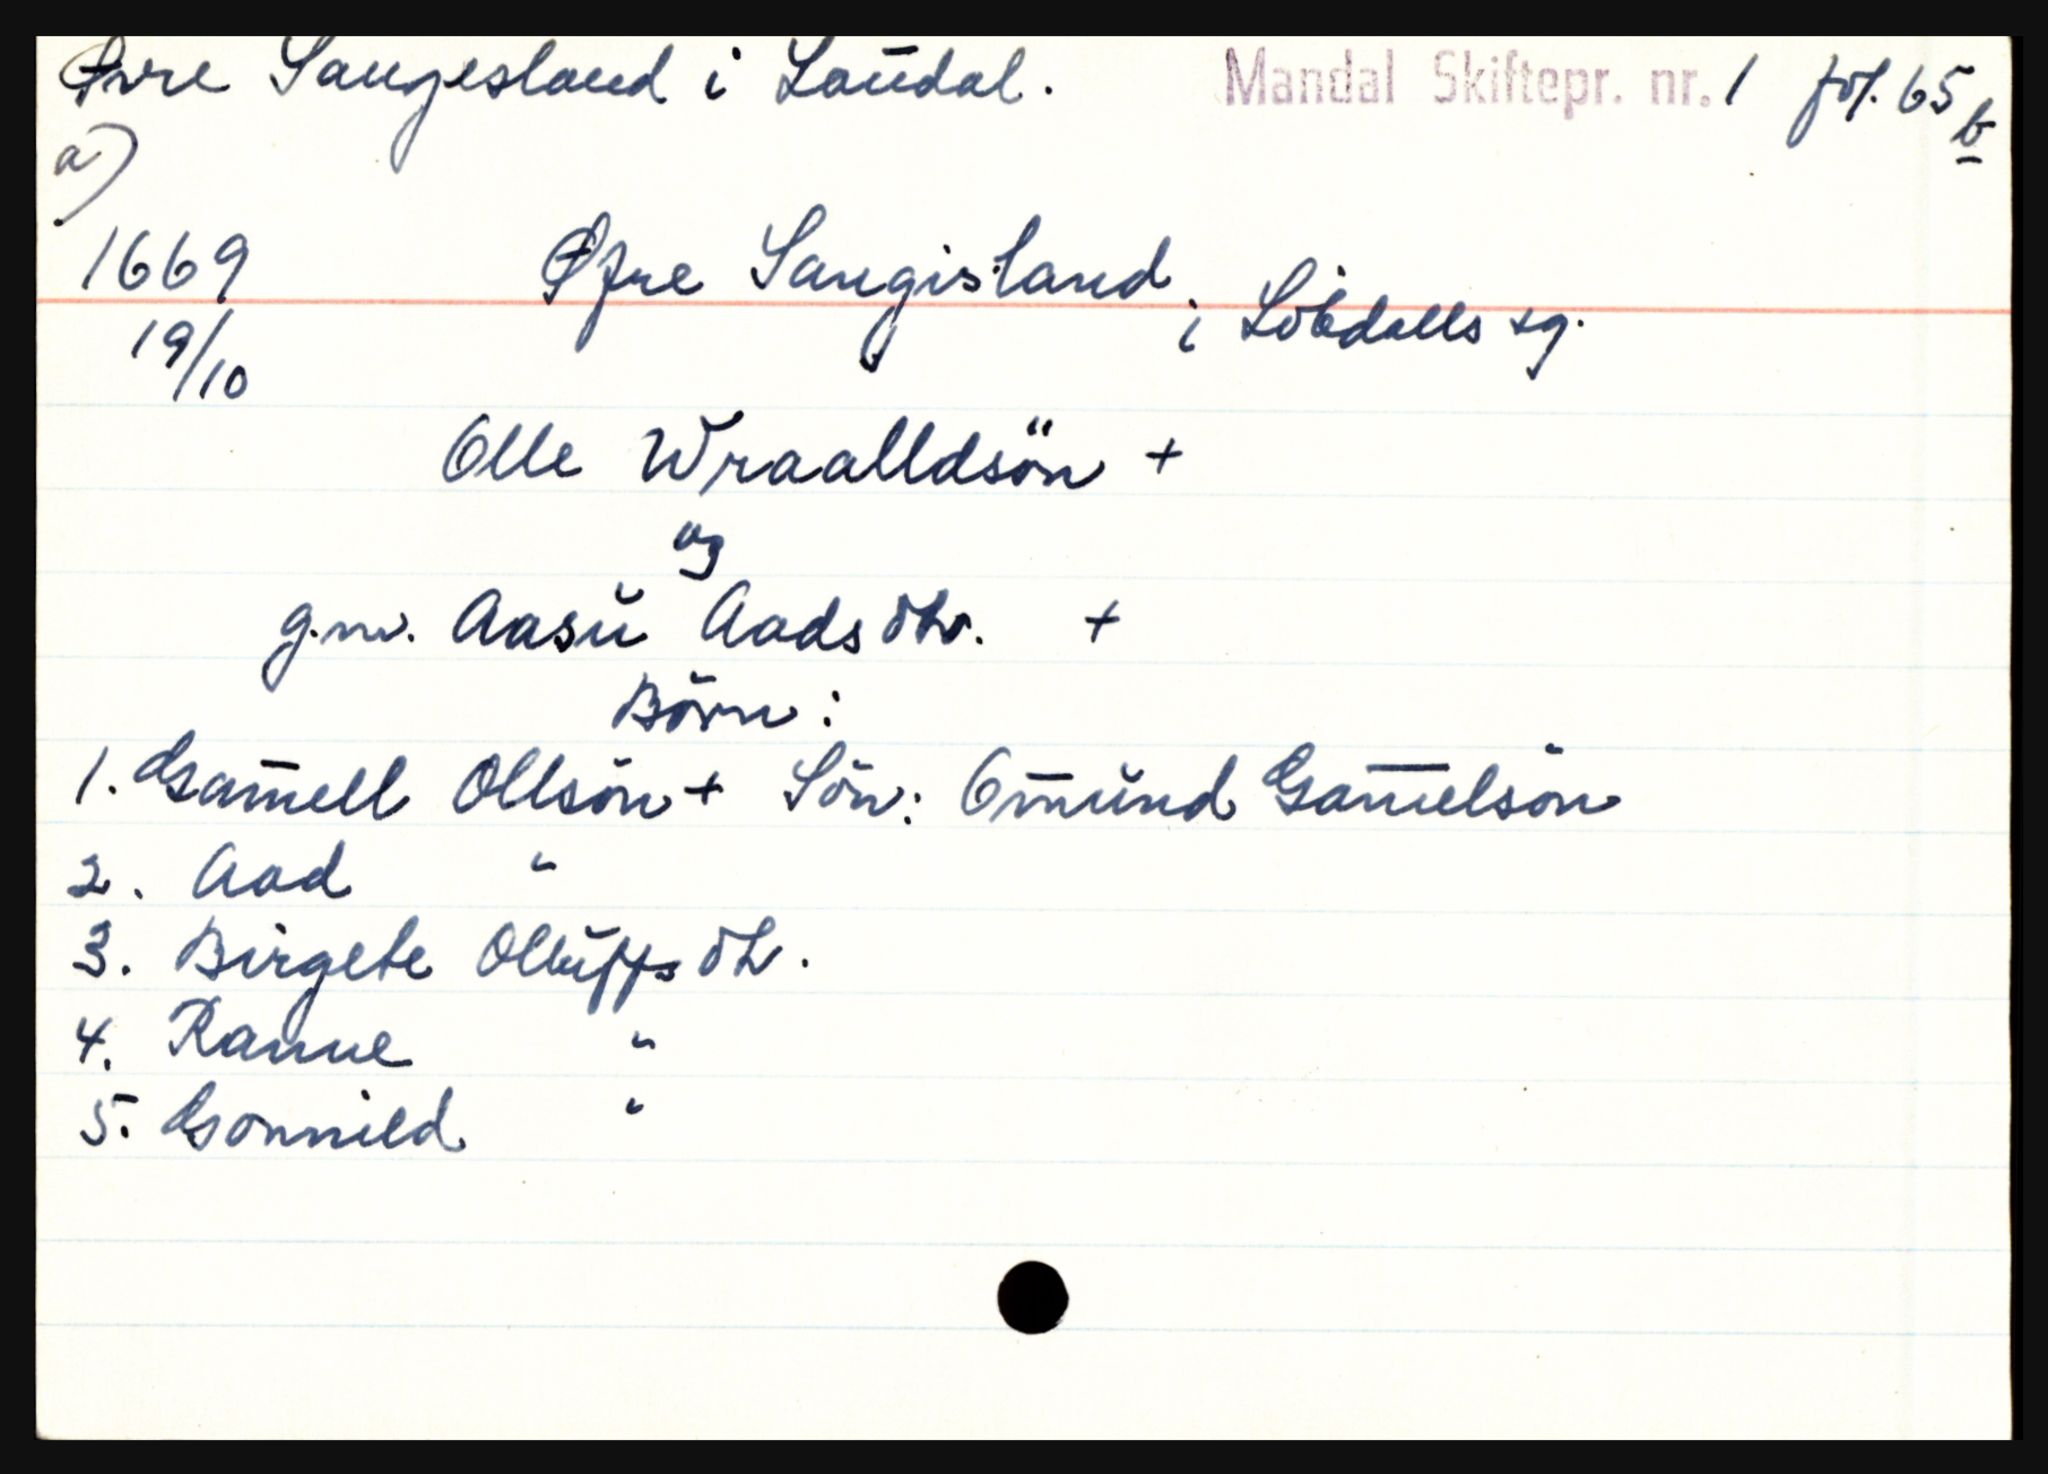 Øvre Sangesland i Laudal. Mandal Skiftepr. nr. 1 fol. 65 b
a)
1669 Øfre Sangisland i Löbdalls sg.
19/10
Olle Wraalldsön +
og
g.m. Aasŭ Aadsdtr. +
Börn:
1. Gam̅ell Ollsön + Sön: Om̅ŭnd Gam̅elsön
2. Aad "
3. Birgete Ollŭffsdtr.
4. Ranne "
5. Gonnild "